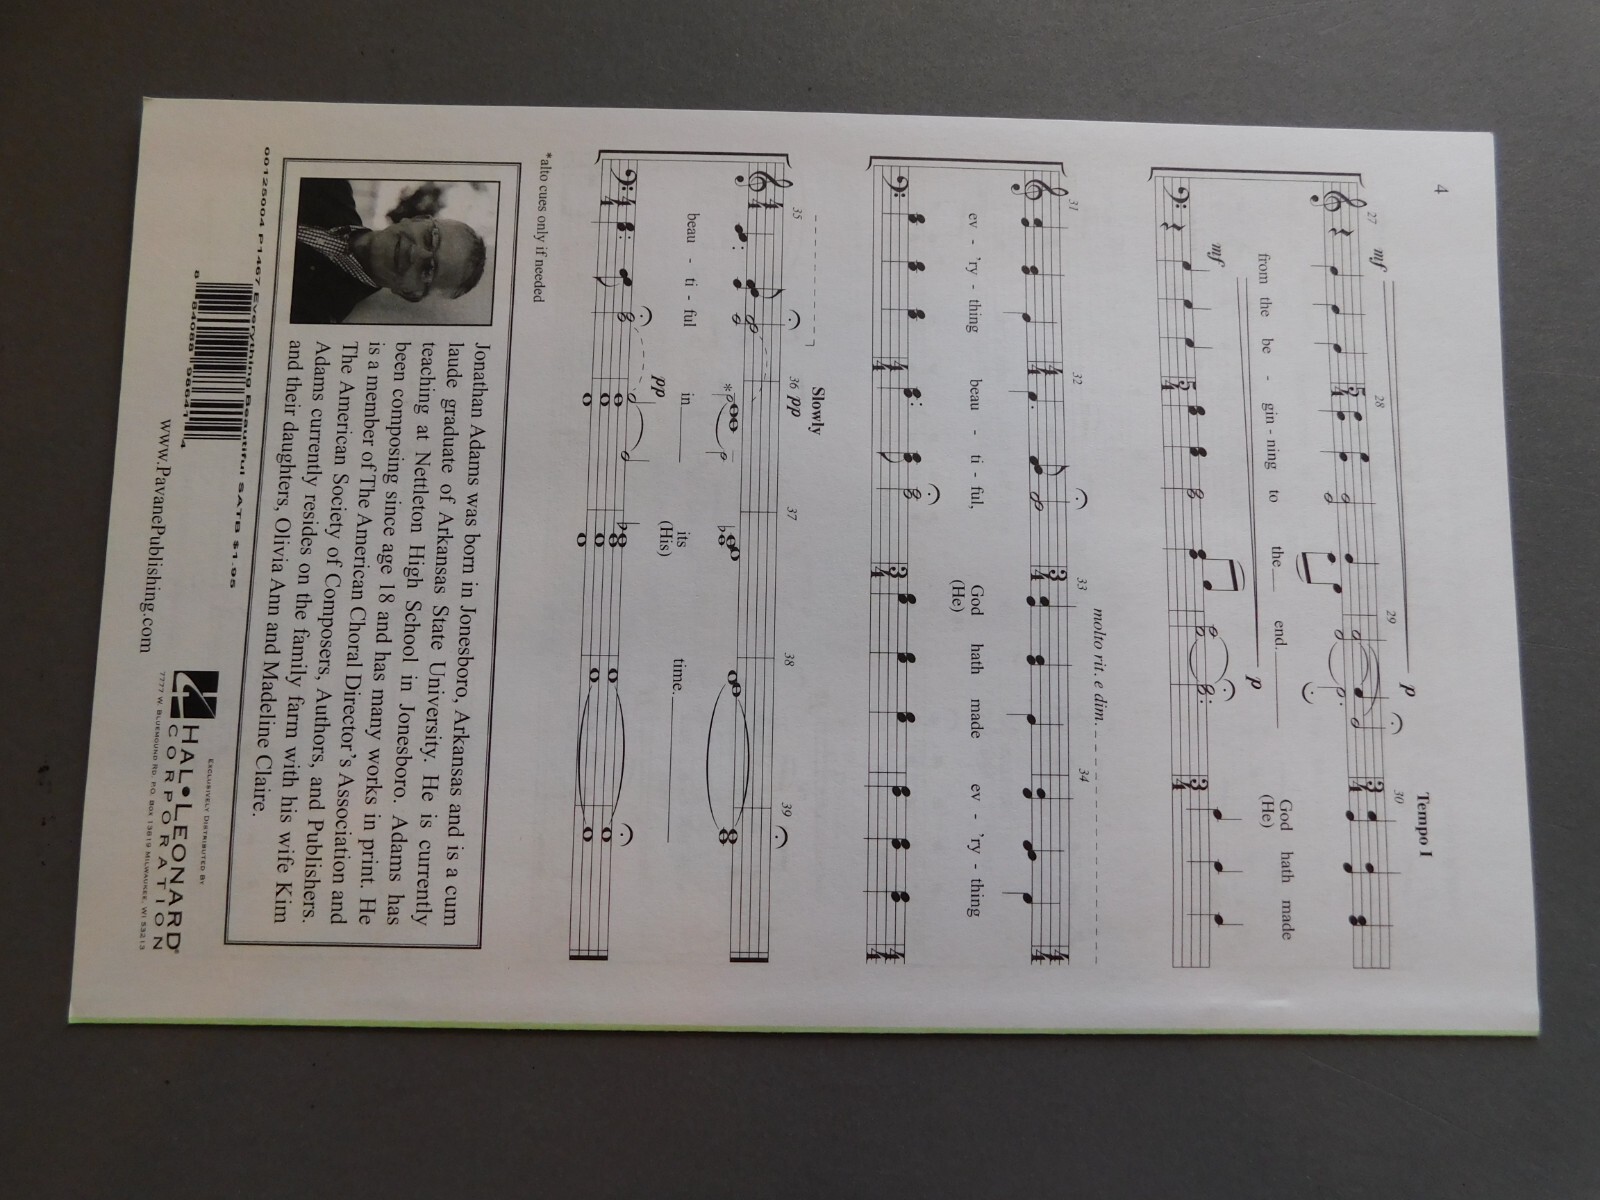 4
Tempo I
27 mf 28 29 p 30
from the be - gin - ning to the end. God hath made
(He)
mf p
molto rit. e dim.
31 32 33 34
ev - 'ry - thing beau - ti - ful, God hath made ev - 'ry - thing
(He)
Slowly
35 36 pp 37 38 39
*
beau - ti - ful in its time.
(His)
pp
*alto cues only if needed
Jonathan Adams was born in Jonesboro, Arkansas and is a cum
laude graduate of Arkansas State University. He is currently
teaching at Nettleton High School in Jonesboro. Adams has
been composing since age 18 and has many works in print. He
is a member of The American Choral Director's Association and
The American Society of Composers, Authors, and Publishers.
Adams currently resides on the family farm with his wife Kim
and their daughters, Olivia Ann and Madeline Claire.
00125004 P1467 Everything Beautiful SATB $1.95
8 84088 96841 4
www.PavanePublishing.com
EXCLUSIVELY DISTRIBUTED BY
HAL•LEONARD®
CORPORATION
7777 W. BLUEMOUND RD. P.O. BOX 13819 MILWAUKEE, WI 53213